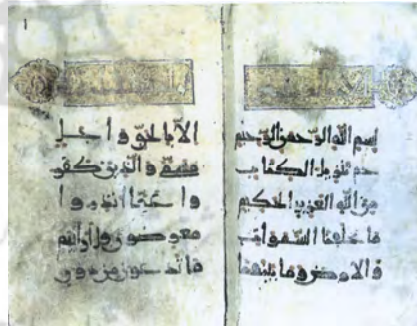 بسم الله الرحمن الرحيم
حم تنزيل الكتاب
من الله العزيز الحكيم
ما خلقنا السموات
والارض وما بينهما
1
الا بالحق واجل
مسمى والذين كفرو
ا عما انذروا
معرضون قل ارايتم
ما تدعون من دون